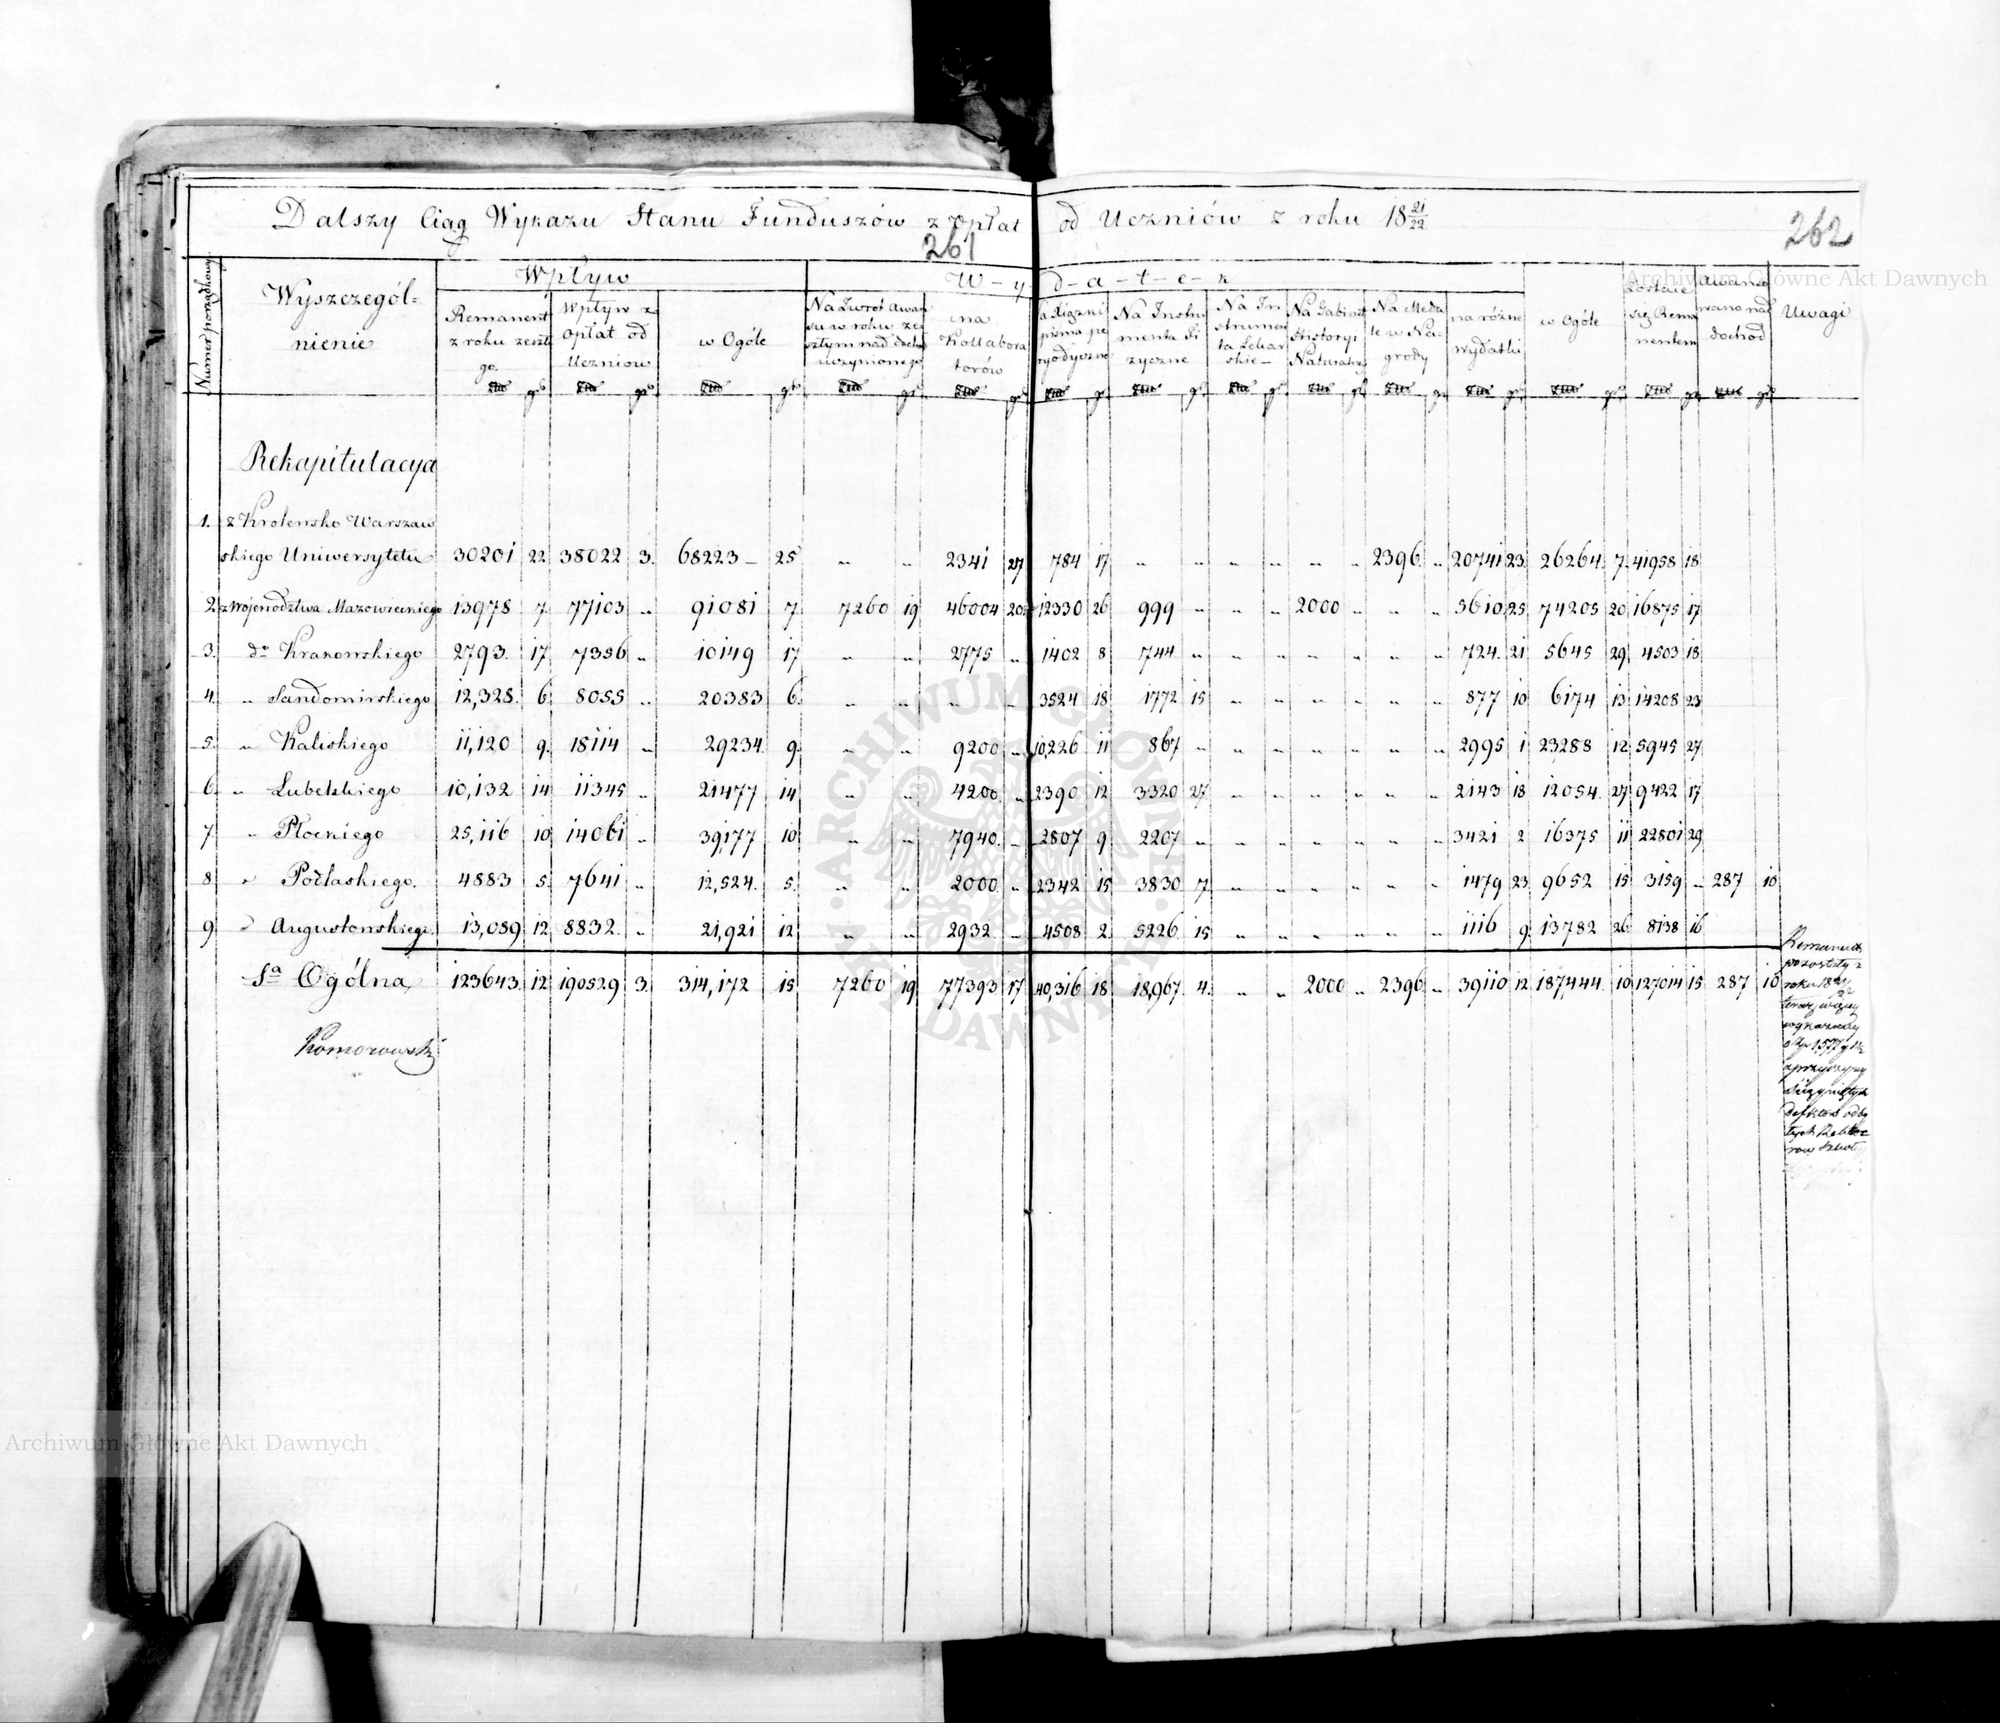 Dalszy Ciąg Wykazu Stanu Funduszów z Opłat od Uczniów z roku 18 21/22
261
262
Archiwum Główne Akt Dawnych
Numer porządkowy
Wyszczegól=
nienie
Wpływ
W-y-d-a-t-e-k
Remanent
z roku zeszłe
go.
Wpływ z
opłat od
Uczniow
w Ogóle
Na Zwrot Awan
su w roku ze
szłym nad doch
uczynionego
na
Kollabora
torów
pisma pe
ryodyczne
Na Instru
menta Fi
zyczne
Na In
strumen
ta Lekar
skie
Na Gabinet
Historyi
Naturalney
Na Meda
le w Na
grody
na różne
wydatki
w Ogóle
Zostaie
się Rema
nentem
Awanso
wano nad
dochod
Uwagi
Rekapitulacya
1. z Krolewsko Warszaw
skiego Uniwersytetu 30201 22 38022 3. 68223 – 25 „ „ 2341 27 784 17 „ „ „ „ „ „ 2396. „ 20741 23 26264. 7. 41958 18
2 z Wojewodztwa Mazowieckiego 13978 7. 77103 „ 91081 7 7260 19 46004 20 12330 26 999 „ „ „ 2000 „ „ „ 5610 25 74205 20 16875 17
3. do Krakowskiego 2793. 17 7356 „ 10149 17 „ „ 2775 „ 1402 8 744 „ „ „ „ „ „ „ 724. 21 5645 29 4503 18
4. „ Sandomirskiego 12,328. 6 8055 „ 20383 6. „ „ „ „ 3524 18 1772 15 „ „ „ „ „ „ 877 10 6174 13 14208 23
5. „ Kaliskiego 11,120 9. 18114 „ 29234. 9. „ „ 9200 „ 10,226 11 867 „ „ „ „ „ „ „ 2995 1 23288 12 5945 27
6. „ Lubelskiego 10,132 14 11345 „ 21477 14 „ „ 4200. „ 2390 12 3320 27 „ „ „ „ „ „ 2143 18 12054. 27 9422 17
7. „ Płockiego 25,116 10 14061 „ 39,177 10 „ „ 7940. „ 2807 9 2207 „ „ „ „ „ „ „ 3421 2 16375 11 22801 29
8 „ Podlaskiego. 4883 5. 7641 „ 12,524. 5. „ „ 2000. „ 2342 15 3830 7 „ „ „ „ „ „ 1479 23 9652 15 3159 „ 287 10
9. „ Augustowskiego. 13,089 12 8832. „ 21,921 12 „ „ 2932 „ 4508 2 5226 15 „ „ „ „ „ „ 1116 9. 13782 26 8138 16
Sa Ogólna 123643. 12 190529 3. 314,172 15 7260 19 77393 17 40,316 18 18,967. 4. „ „ 2000 „ 2396 „ 39110 12 187,444. 10 127014 15 287 10
Remanent
pozostały z
roku
wykazany
z przyczyny
row Szkoły
Komorowski
ARCHIWUM GŁÓWNE AKT DAWNYCH
Archiwum Główne Akt Dawnych